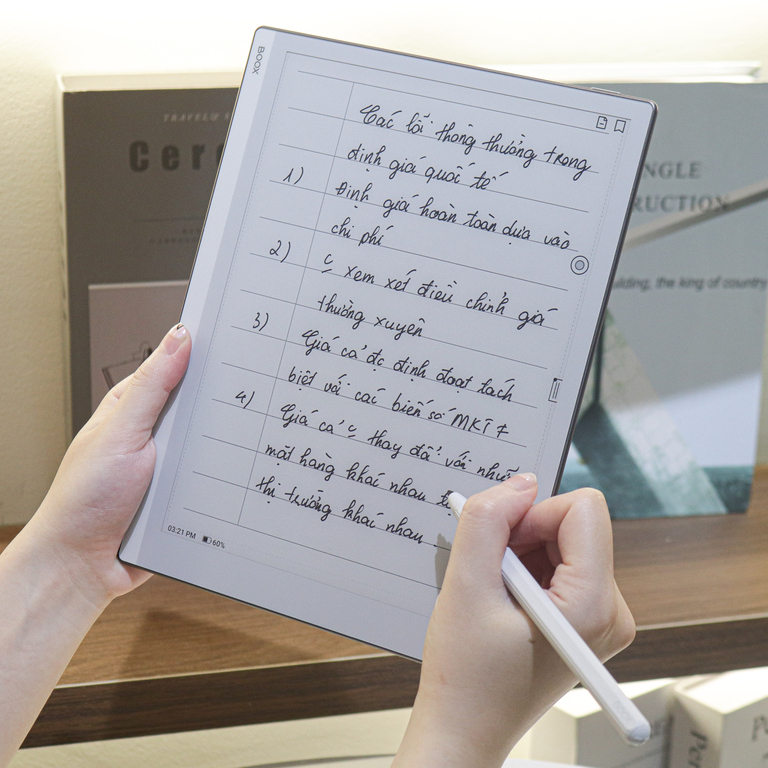 BOOX
Các lỗi thông thường trong
định giá quốc tế
1) Định giá hoàn toàn dựa vào
chi phí
2) xem xét điều chỉnh giá
thường xuyên
3) Giá cả đc định đoạt tách
biệt với các biến số MKT ≠
4) Giá cả thay đổi với
mặt hàng khác nhau
thị trường khác nhau
03:21 PM 60%
TRAVEL
Cer
NGLE
RUCTION
uilding, the king of country